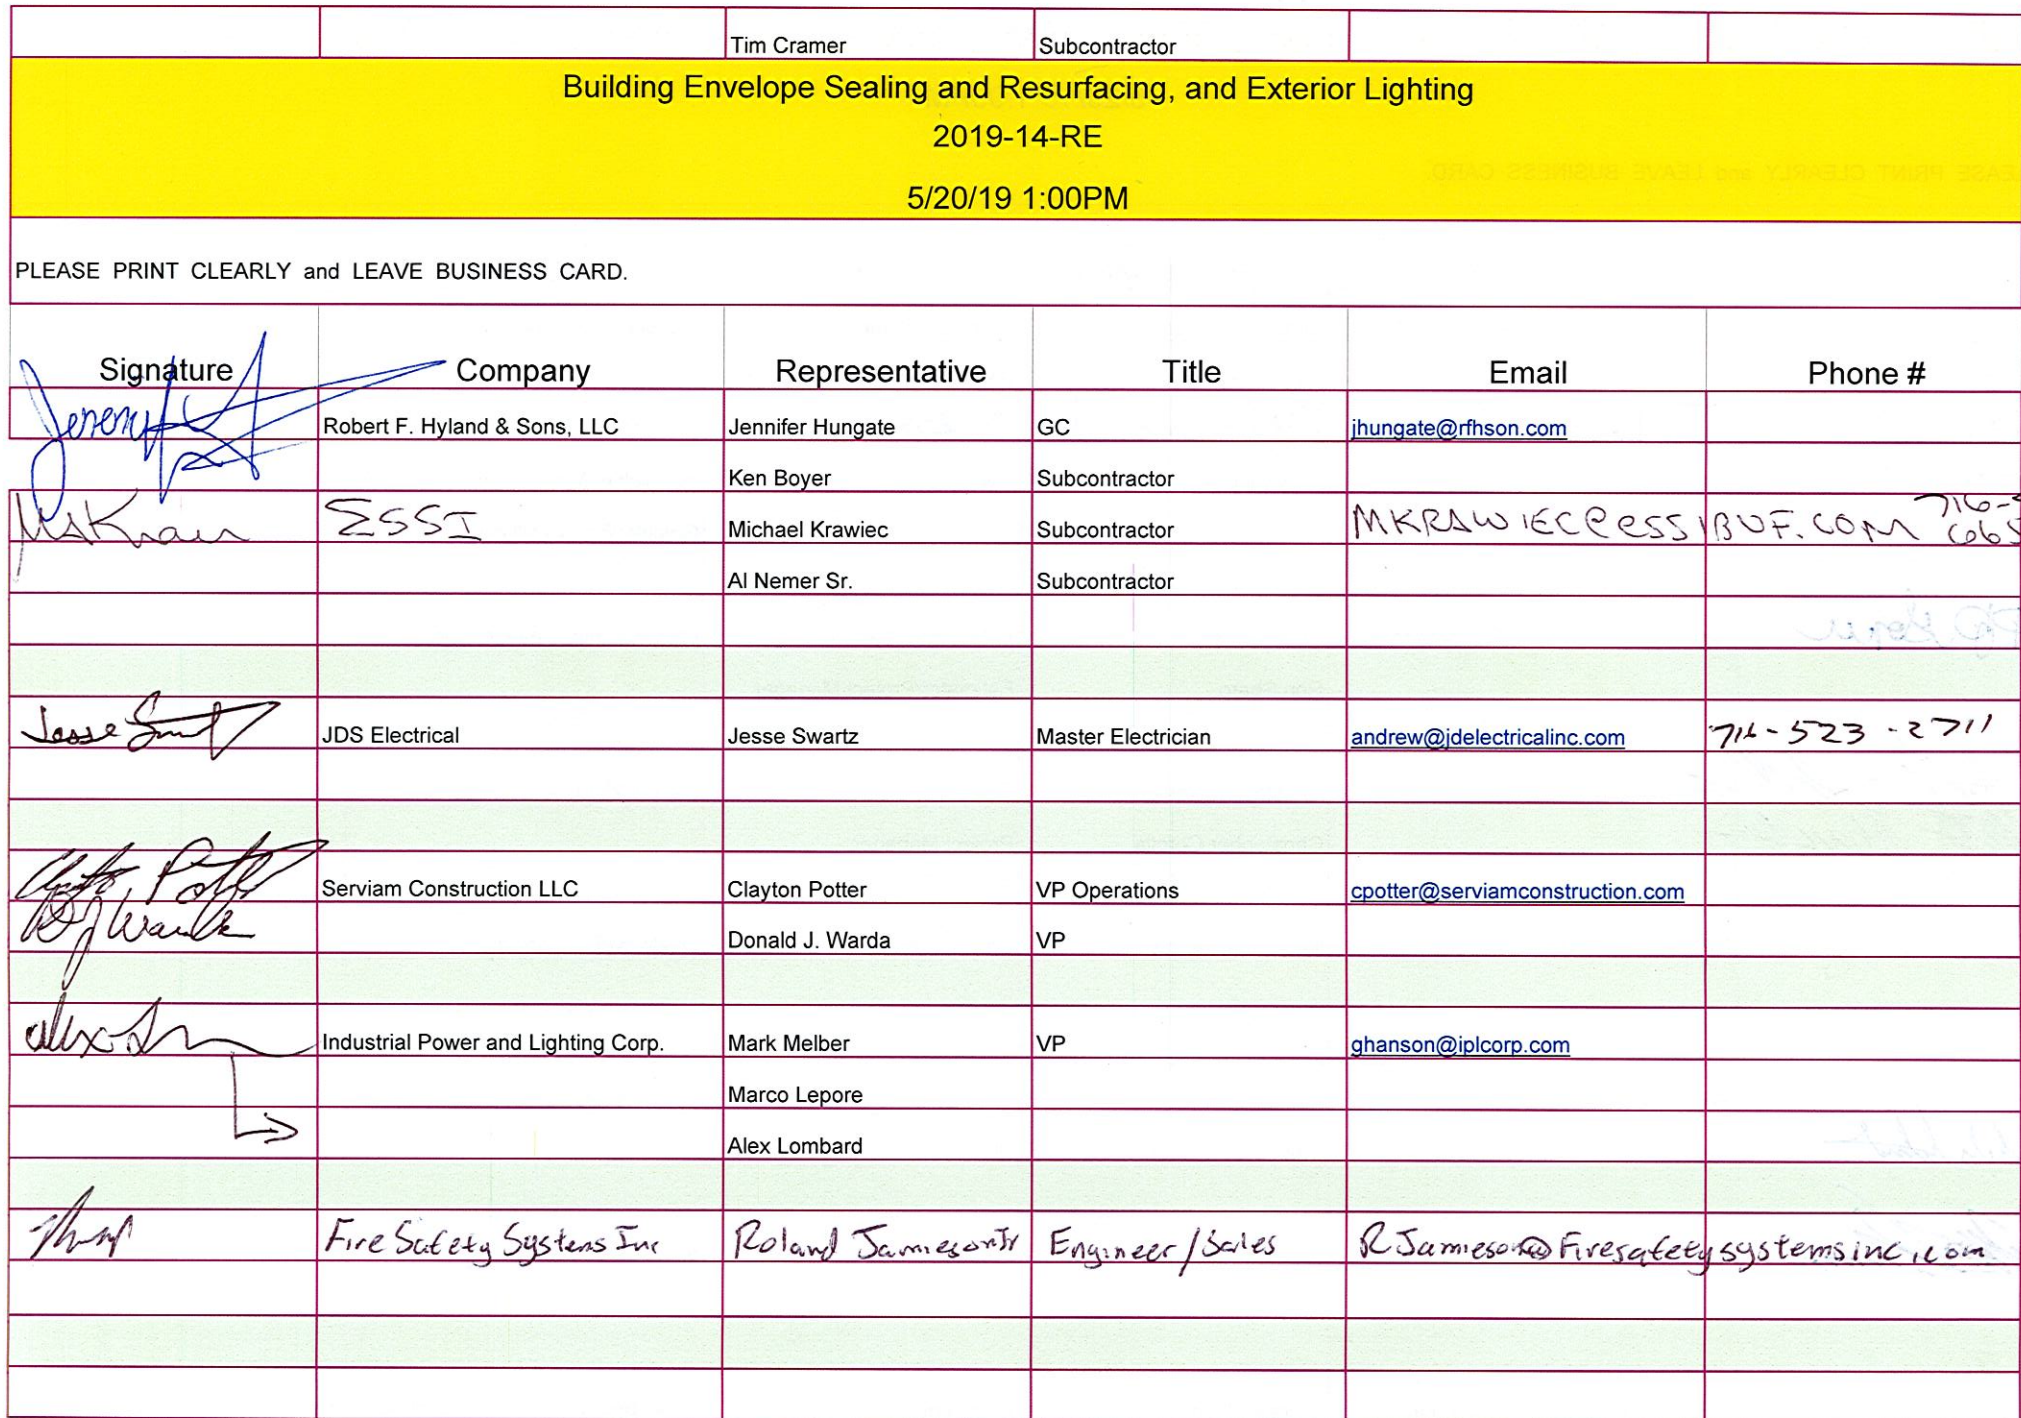 Tim Cramer Subcontractor
Building Envelope Sealing and Resurfacing, and Exterior Lighting
2019-14-RE
5/20/19 1:00PM
PLEASE PRINT CLEARLY and LEAVE BUSINESS CARD.
Signature Company Representative Title Email Phone #
Jeremy Robert F. Hyland & Sons, LLC Jennifer Hungate GC jhungate@rfhson.com
Ken Boyer Subcontractor
ESSI Michael Krawiec Subcontractor MKRAWIEC@ESSIBUF.COM 716-
665
Al Nemer Sr. Subcontractor
Jesse JDS Electrical Jesse Swartz Master Electrician andrew@jdelectricalinc.com 716-523-2711
Clayton Potter Serviam Construction LLC Clayton Potter VP Operations cpotter@serviamconstruction.com
DJ Warda Donald J. Warda VP
Alex Industrial Power and Lighting Corp. Mark Melber VP ghanson@iplcorp.com
Marco Lepore
Alex Lombard
Fire Safety Systems Inc Roland Jamieson Jr Engineer/Sales RJamieson@Firesafetysystemsinc.com